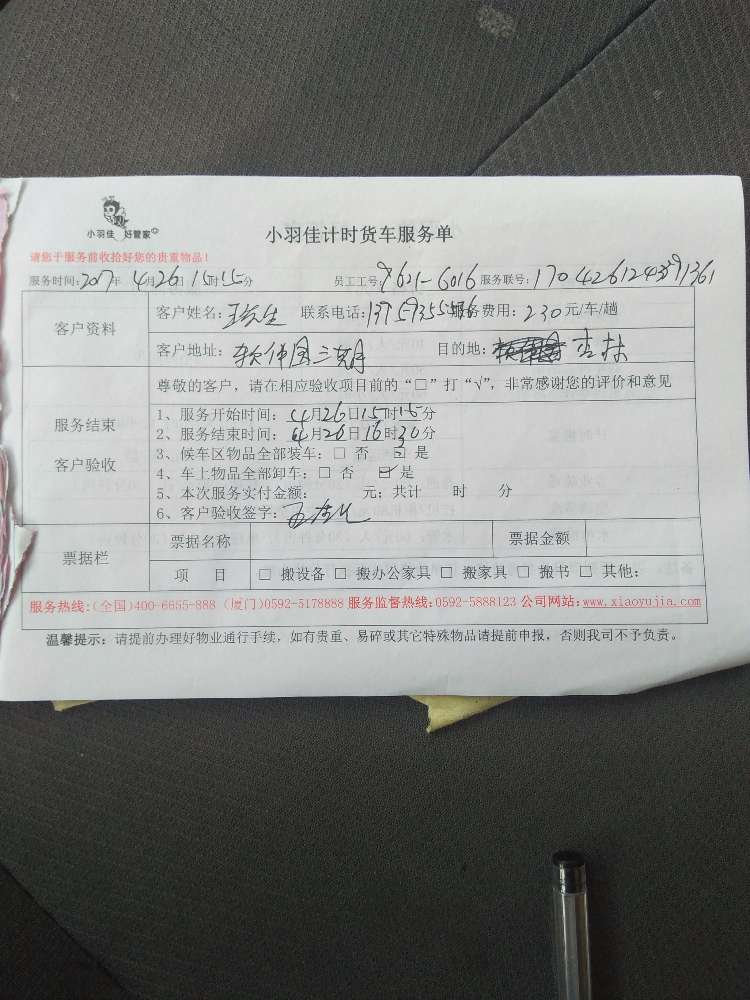 小羽佳 好管家
小羽佳计时货车服务单
请您于服务前收拾好您的贵重物品!
服务时间:2017年 4月26日15时15分 员工工号:9621-6016 服务联号:
客户资料
客户姓名:王先生 联系电话: 服务费用:230元/车/趟
客户地址:软件园三期 目的地:杏林
尊敬的客户,请在相应验收项目前的“□”打“√”,非常感谢您的评价和意见
服务结束
客户验收
1、服务开始时间:4月26日15时15分
2、服务结束时间:4月26日16时30分
3、候车区物品全部装车:□ 否 ☑ 是
4、车上物品全部卸车:□ 否 ☑ 是
5、本次服务实付金额: 元;共计 时 分
6、客户验收签字:
票据栏
票据名称 票据金额
项 目 □ 搬设备 □ 搬办公家具 □ 搬家具 □ 搬书 □ 其他:
服务热线:(全国)400-6655-888 (厦门)0592-5178888 服务监督热线:0592-5888123 公司网站:www.xiaoyujia.com
温馨提示:请提前办理好物业通行手续,如有贵重、易碎或其它特殊物品请提前申报,否则我司不予负责。